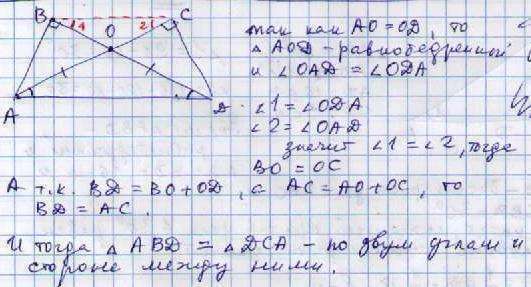 B 1 2 C
O
A D
так как AO = OD, то
△ AOD - равнобедренной
и ∠OAD = ∠ODA
∠1 = ∠ODA
∠2 = ∠OAD
значит ∠1 = ∠2, тогда
BO = OC
А т.к. BD = BO + OD, а AC = AO + OC, то
BD = AC.
И тогда △ ABD = △ DCA - по двум углам и
стороне между ними.